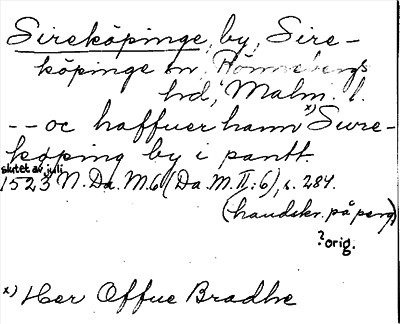 Sireköpinge, by, Sire-
köpinge sn, Rönnebergs
hd, Malm. l.
-- oc haffuer hann x) Sure-
köping by i pantt.
slutet av juli
1523 N. Da. M. 6 (Da. M. II: 6), s. 284.
(handskr. på perg)
? orig.
x) Her Offue Bradhe